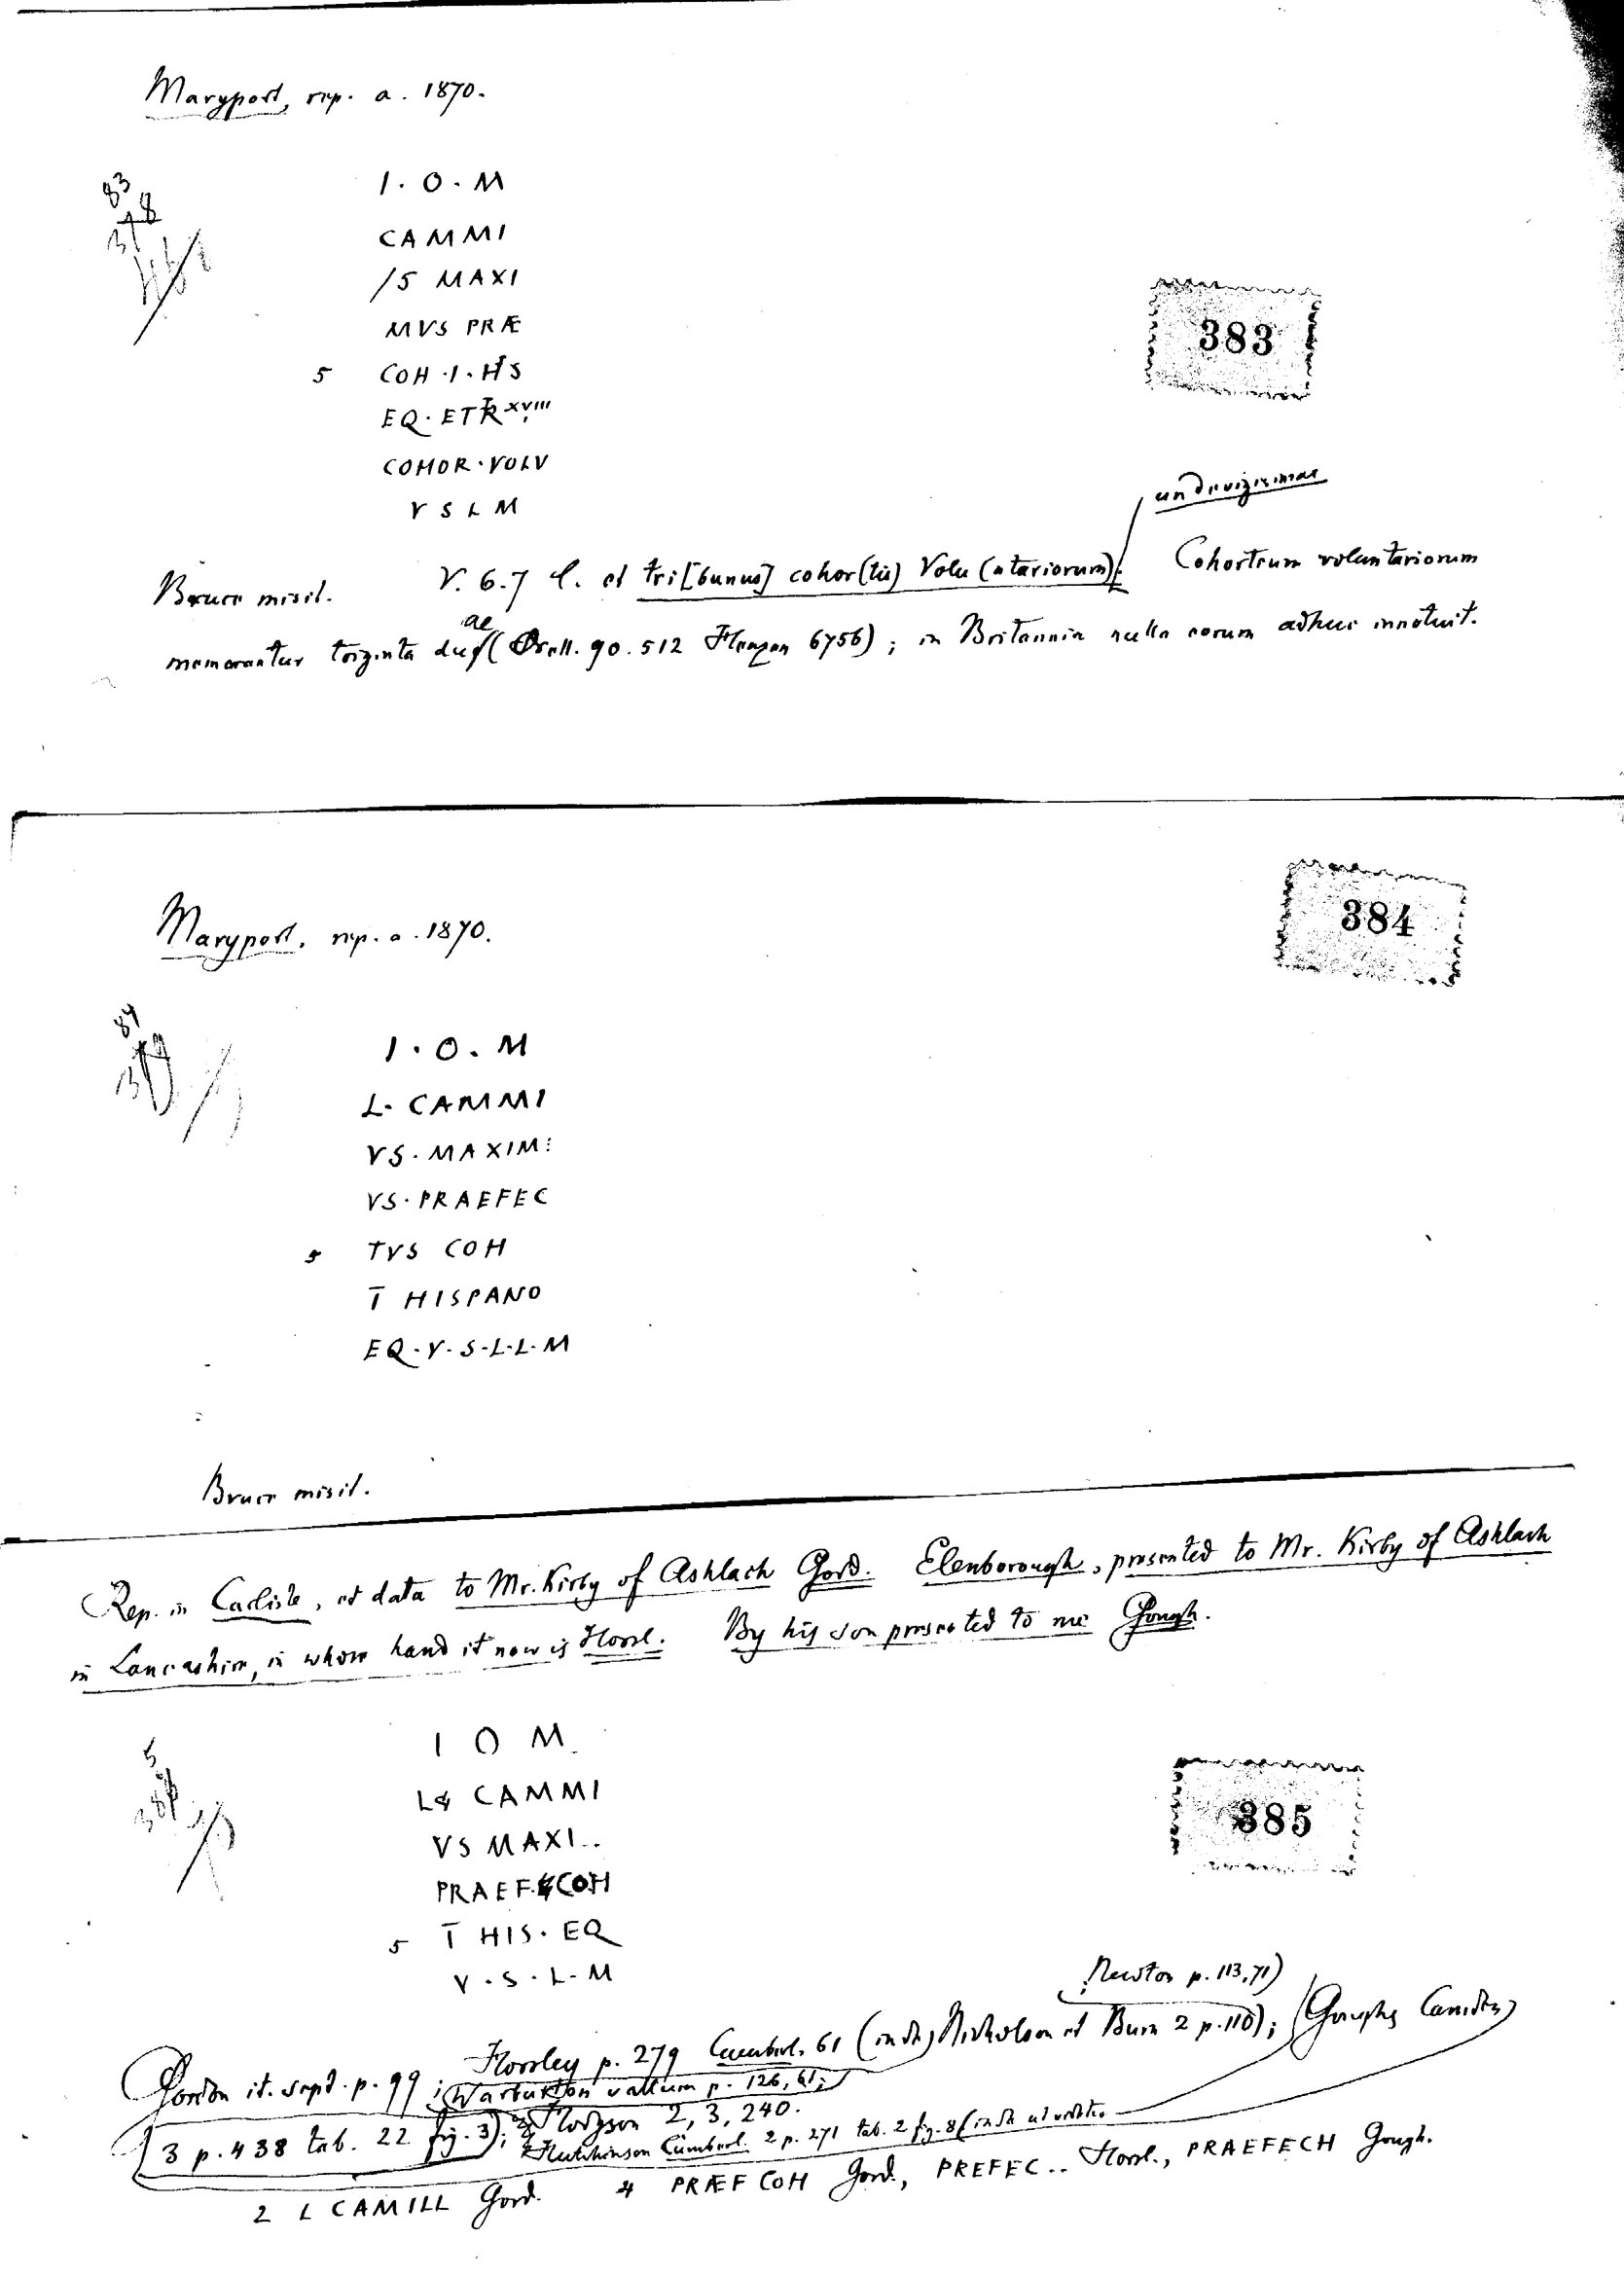 Maryport, rep. a. 1870.
83
I · O · M
CAMMI
/S MAXI
383
MVS PRÆ
5 COH · I · HS
EQ · ET TR XVIII
COHOR · VOLV
V S L M
undevizesimae
Bruce misit. V. 6.7 l. et tri[bunus] cohor(tis) Volu(ntariorum). Cohortium voluntariorum
memorantur triginta duae (Orell. 90. 512 Henzen 6756); in Britannia nulla earum adhuc innotuit.
384
Maryport, rep. a. 1870.
84
I · O · M
L · CAMMI
VS · MAXIM:
VS · PRAEFEC
5 TVS COH
I HISPANO
EQ · V · S · L · L · M
Bruce misit.
Rep. in Carlisle, et data to Mr. Kirby of Ashlach Gord. Elenborough, presented to Mr. Kirby of Ashlach
in Lancashire, in whose hand it now is Horsl. By his son presented to me Gough.
I O M
5
L CAMMI
385
VS MAXI..
PRAEF COH
5 I HIS · EQ
V · S · L · M
Newton p. 113, 71)
Gordon it. sept. p. 99; Horsley p. 279 Cumberl. 61 (inde Nicholson et Burn 2 p. 110); (Goughs Camden
Warburton vallum p. 126, 61;
3 p. 438 tab. 22 fig. 3); Hodgson 2, 3, 240.
Hutchinson Cumberl. 2 p. 271 tab. 2 fig. 8 (inde
2 L CAMILL Gord. 4 PRÆF COH Gord., PREFEC.. Horsl., PRAEFECH Gough.